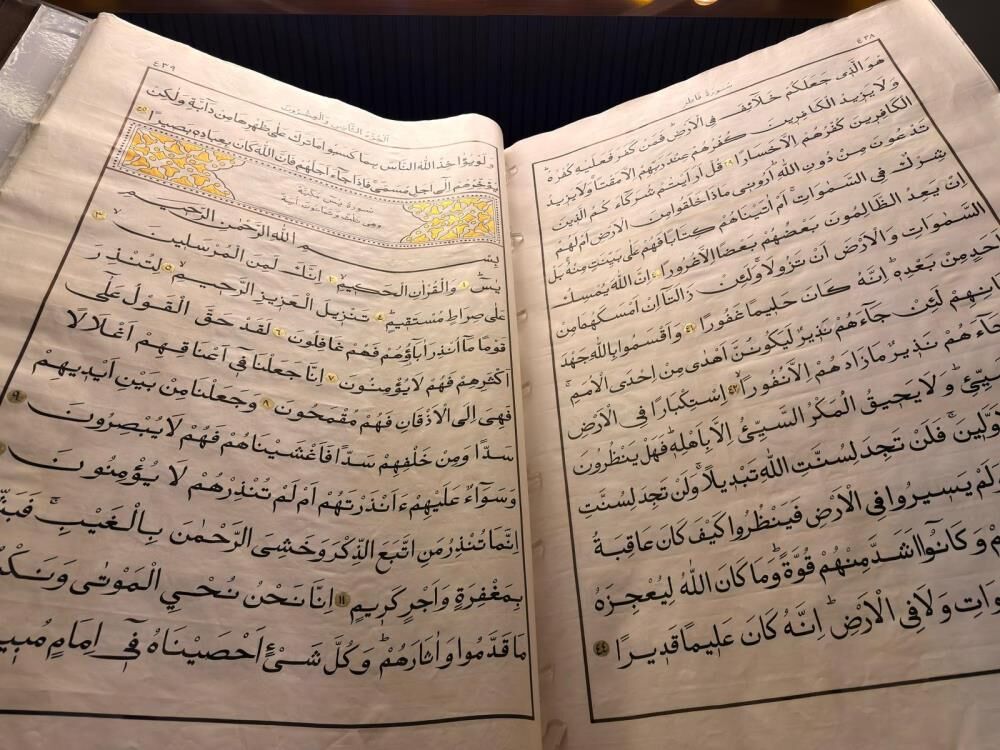 ٤٣٨
سُورَةُ فَاطِر
هُوَ الَّذِى جَعَلَكُمْ خَلَٓائِفَ فِى الْاَرْضِ فَمَنْ كَفَرَ فَعَلَيْهِ كُفْرُهُ
وَلَا يَزِيدُ الْكَافِرِينَ كُفْرُهُمْ عِنْدَ رَبِّهِمْ اِلَّا مَقْتًا وَلَا يَزِيدُ
الْكَافِرِينَ كُفْرُهُمْ اِلَّا خَسَارًا ٣٩ قُلْ اَرَاَيْتُمْ شُرَكَٓاءَكُمُ الَّذِينَ
تَدْعُونَ مِنْ دُونِ اللّٰهِ اَرُونِى مَاذَا خَلَقُوا مِنَ الْاَرْضِ اَمْ لَهُمْ
شِرْكٌ فِى السَّمٰوَاتِ اَمْ اٰتَيْنَاهُمْ كِتَابًا فَهُمْ عَلٰى بَيِّنَتٍ مِنْهُ بَلْ
اِنْ يَعِدُ الظَّالِمُونَ بَعْضُهُمْ بَعْضًا اِلَّا غُرُورًا ٤٠ اِنَّ اللّٰهَ يُمْسِكُ
السَّمٰوَاتِ وَالْاَرْضَ اَنْ تَزُولَا وَلَئِنْ زَالَتَٓا اِنْ اَمْسَكَهُمَا مِنْ
اَحَدٍ مِنْ بَعْدِهِ اِنَّهُ كَانَ حَلِيمًا غَفُورًا ٤١ وَاَقْسَمُوا بِاللّٰهِ جَهْدَ
لَئِنْ جَٓاءَهُمْ نَذِيرٌ لَيَكُونُنَّ اَهْدٰى مِنْ اِحْدَى الْاُمَمِ
جَٓاءَهُمْ نَذِيرٌ مَا زَادَهُمْ اِلَّا نُفُورًا ٤٢ اِسْتِكْبَارًا فِى الْاَرْضِ
وَلَا يَحِيقُ الْمَكْرُ السَّيِّئُ اِلَّا بِاَهْلِهِ فَهَلْ يَنْظُرُونَ
فَلَنْ تَجِدَ لِسُنَّتِ اللّٰهِ تَبْدِيلًا وَلَنْ تَجِدَ لِسُنَّتِ
وَلَمْ يَسِيرُوا فِى الْاَرْضِ فَيَنْظُرُوا كَيْفَ كَانَ عَاقِبَةُ
وَكَانُٓوا اَشَدَّ مِنْهُمْ قُوَّةً وَمَا كَانَ اللّٰهُ لِيُعْجِزَهُ
وَلَا فِى الْاَرْضِ اِنَّهُ كَانَ عَلِيمًا قَدِيرًا ٤٤
٤٣٩
اَلْجُزْءُ الثَّانِى وَالْعِشْرُونَ
وَلَوْ يُؤَاخِذُ اللّٰهُ النَّاسَ بِمَا كَسَبُوا مَا تَرَكَ عَلٰى ظَهْرِهَا مِنْ دَٓابَّةٍ وَلٰكِنْ
يُؤَخِّرُهُمْ اِلٰٓى اَجَلٍ مُسَمًّى فَاِذَا جَٓاءَ اَجَلُهُمْ فَاِنَّ اللّٰهَ كَانَ بِعِبَادِهِ بَصِيرًا ٤٥
سُورَةُ يٰس مَكِّيَّة
وَهِىَ ثَلٰثٌ وَثَمَانُونَ اٰيَة
بِسْمِ اللّٰهِ الرَّحْمٰنِ الرَّحِيمِ
يٰسٓ ١ وَالْقُرْاٰنِ الْحَكِيمِ ٢ اِنَّكَ لَمِنَ الْمُرْسَلِينَ ٣
عَلٰى صِرَاطٍ مُسْتَقِيمٍ ٤ تَنْزِيلَ الْعَزِيزِ الرَّحِيمِ ٥ لِتُنْذِرَ
قَوْمًا مَٓا اُنْذِرَ اٰبَٓاؤُهُمْ فَهُمْ غَافِلُونَ ٦ لَقَدْ حَقَّ الْقَوْلُ عَلٰٓى
اَكْثَرِهِمْ فَهُمْ لَا يُؤْمِنُونَ ٧ اِنَّا جَعَلْنَا فِٓى اَعْنَاقِهِمْ اَغْلَالًا
فَهِىَ اِلَى الْاَذْقَانِ فَهُمْ مُقْمَحُونَ ٨ وَجَعَلْنَا مِنْ بَيْنِ اَيْدِيهِمْ
سَدًّا وَمِنْ خَلْفِهِمْ سَدًّا فَاَغْشَيْنَاهُمْ فَهُمْ لَا يُبْصِرُونَ ٩
وَسَوَٓاءٌ عَلَيْهِمْ ءَاَنْذَرْتَهُمْ اَمْ لَمْ تُنْذِرْهُمْ لَا يُؤْمِنُونَ
اِنَّمَا تُنْذِرُ مَنِ اتَّبَعَ الذِّكْرَ وَخَشِىَ الرَّحْمٰنَ بِالْغَيْبِ
بِمَغْفِرَةٍ وَاَجْرٍ كَرِيمٍ ١١ اِنَّا نَحْنُ نُحْيِى الْمَوْتٰى وَنَكْ
مَا قَدَّمُوا وَاٰثَارَهُمْ وَكُلَّ شَىْءٍ اَحْصَيْنَاهُ فِٓى اِمَامٍ مُبِي